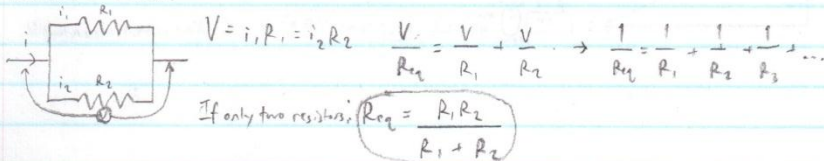 i i₁ R₁
V = i₁R₁ = i₂R₂ V/Req = V/R₁ + V/R₂ → 1/Req = 1/R₁ + 1/R₂ + 1/R₃ + ...
i₂ R₂
V
If only two resistors: Req = R₁R₂/(R₁ + R₂)